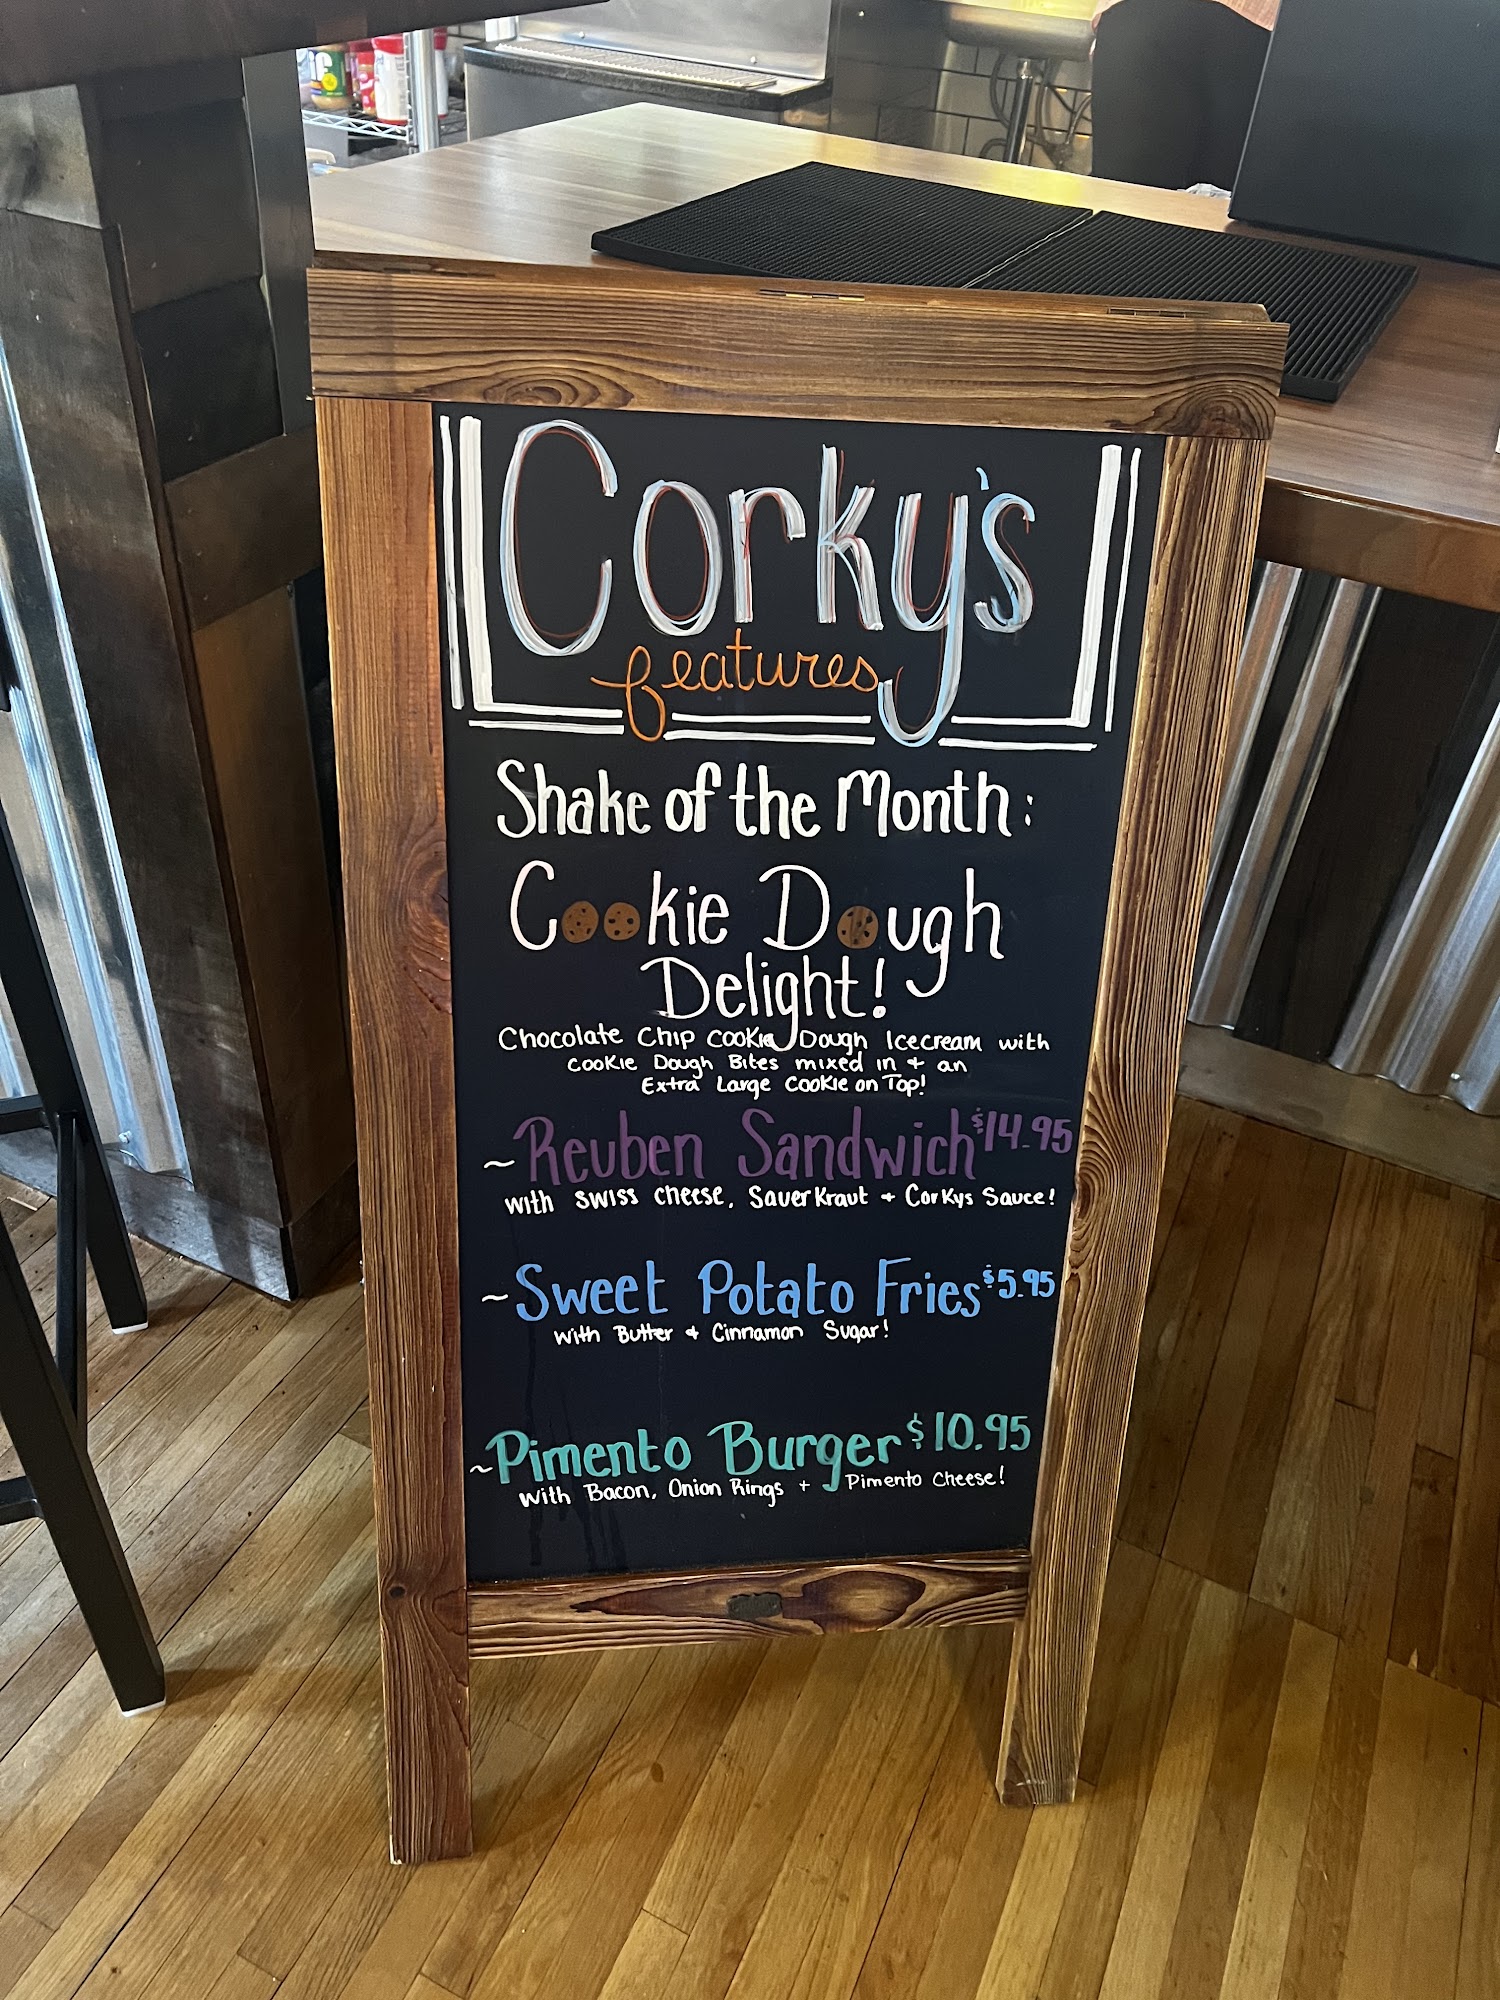 Corky's
features
Shake of the Month:
Cookie Dough
Delight!
Chocolate Chip Cookie Dough Icecream with
Cookie Dough Bites mixed in + an
Extra Large Cookie on Top!
~Reuben Sandwich $14.95
with swiss cheese, Sauerkraut + Corkys Sauce!
~Sweet Potato Fries $5.95
with Butter + Cinnamon Sugar!
~Pimento Burger $10.95
with Bacon, Onion Rings + Pimento Cheese!